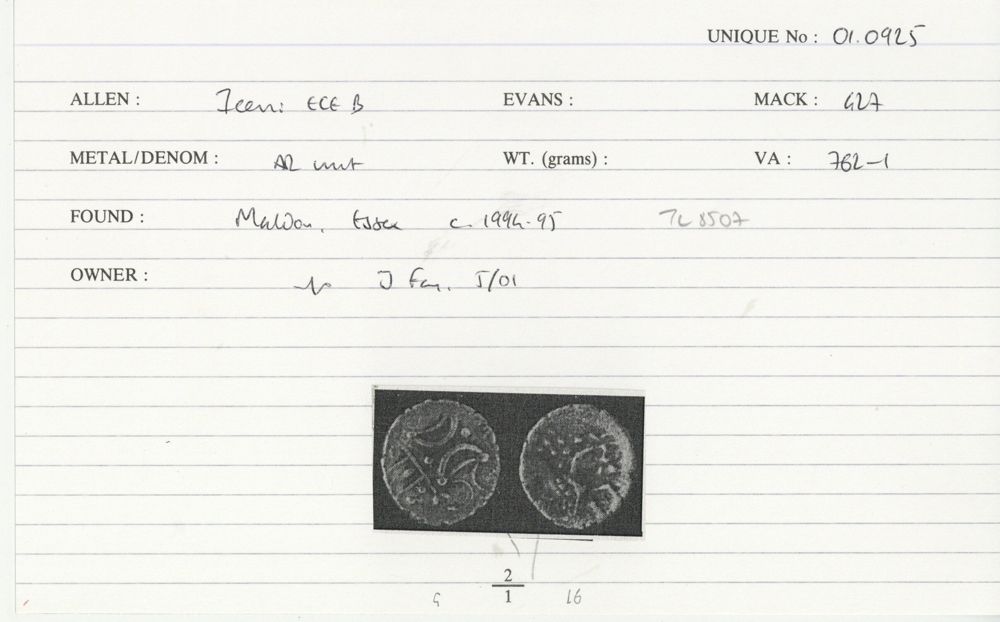 UNIQUE No : 01.0925
ALLEN : Iceni ECE B EVANS : MACK : 427
METAL/DENOM : AR unit WT. (grams) : VA : 762-1
FOUND : Maldon, Essex c. 1994-95 TL 8507
OWNER : J 5/01
2
1
16